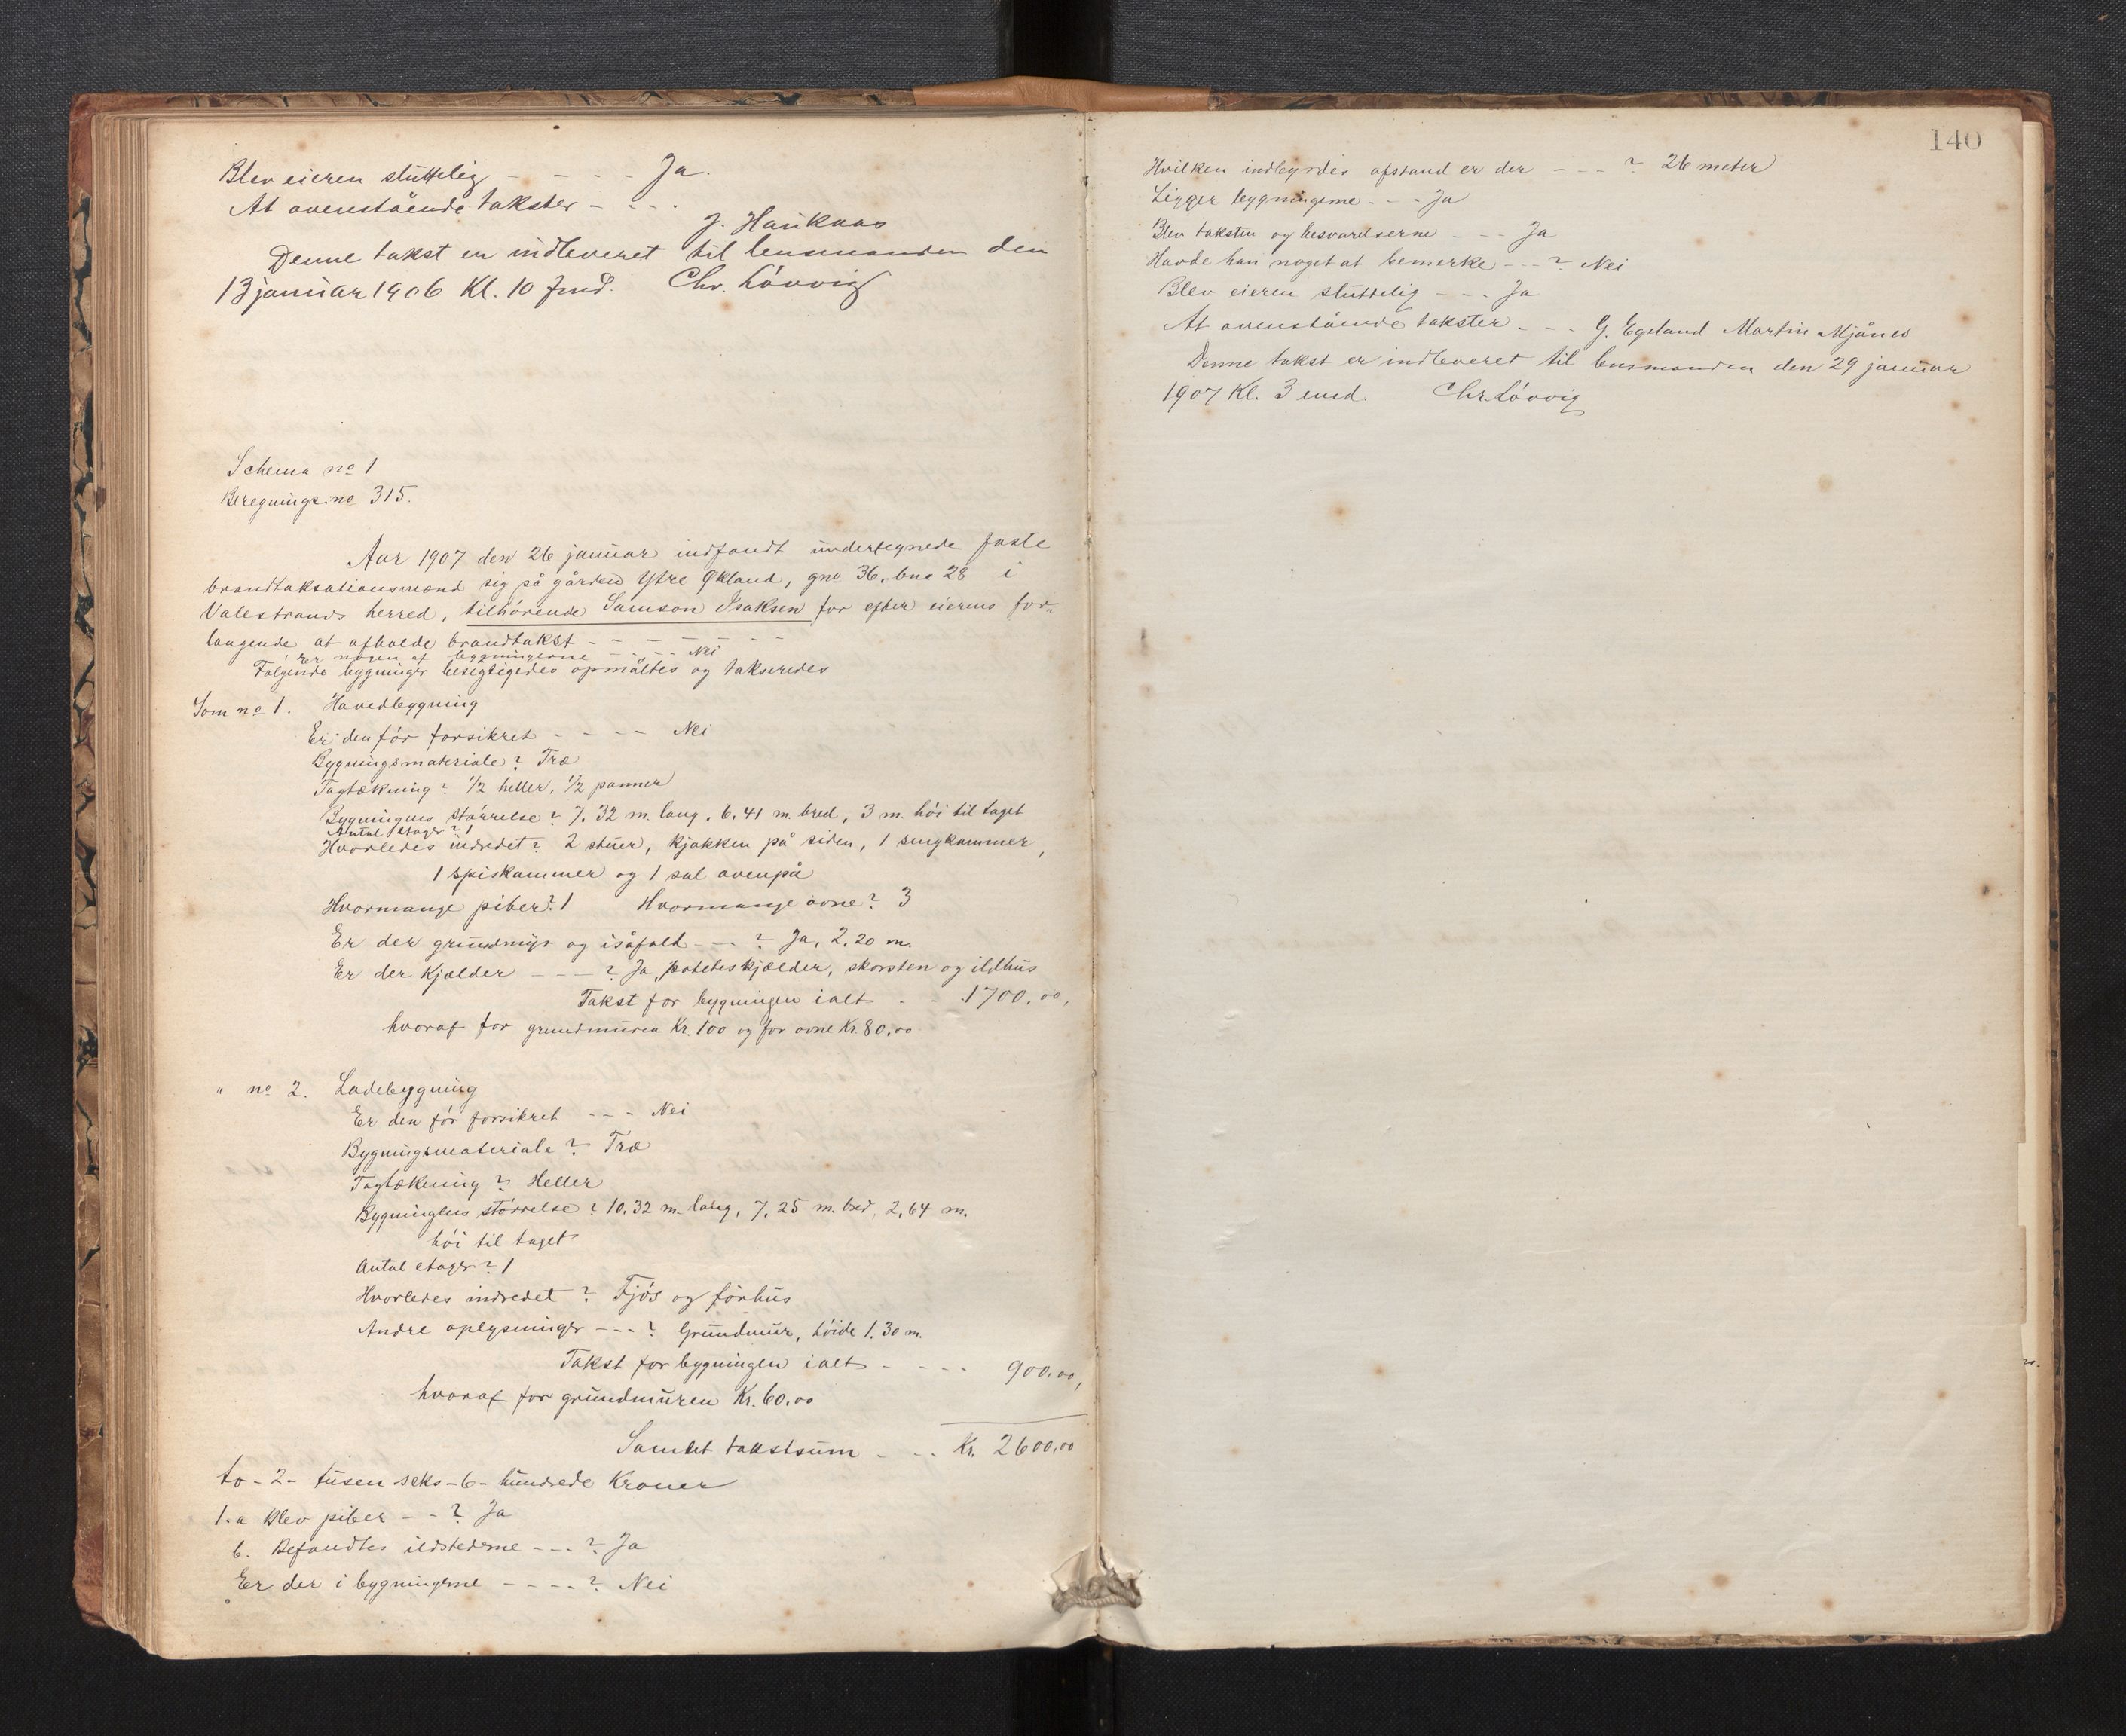 Blev eieren sluttelig - - - - Ja.
At ovenstående takster - - - .
J. Haukaas
Denne takst er indleveret til lensmanden den
13 januar 1906 Kl. 10 fmd. Chr. Lövvig
Schema no 1
Beregnings.no 315.
Aar 1907 den 26 januar indfandt undertegnede faste
brandtaksationsmænd sig på gården Ytre Økland, gno 36, bno 28 i
Valestrands herred, tilhörende Samson Isaksen for efter eierens for-
langende at afholde brandtakst - - - - - - -
Er nogen af bygningerne - - - - Nei
Fölgende bygninger besigtigedes opmåltes og takseredes
Som no 1. Hovedbygning
Er den för forsikret - - - - Nei
Bygningsmateriale? Træ
Tagtækning? 1/2 heller, 1/2 panner
Bygningens störrelse? 7.32 m. lang, 6.41 m. bred, 3 m. höi til taget
Antal etager? 1
Hvorledes indredet? 2 stuer, kjøkken på siden, 1 sengkammer,
1 spiskammer og 1 sal ovenpå
Hvormange piber? 1 Hvormange ovne? 3
Er der grundmur og isåfald - - - ? Ja, 2,20 m.
Er der Kjælder - - - - ? Ja, poteteskjælder, skorsten og ildhus
Takst for bygningen ialt - - 1700,00,
hvoraf for grundmuren Kr. 100 og for ovne Kr. 80,00
" no 2. Ladebygning
Er den för forsikret - - - Nei
Bygningsmateriale? Træ
Tagtækning? Heller
Bygningens störrelse? 10.32 m. lang, 7,25 m. bred, 2,64 m.
höi til taget
Antal etager? 1
Hvorledes indredet? Fjös og förhus
Andre oplysninger - - - ? Grundmur, höide 1.30 m.
Takst for bygningen ialt - - - - 900,00,
hvoraf for grundmuren Kr. 60,00
Samlet takstsum - - - Kr. 2600,00
to - 2 - tusen seks - 6 - hundrede Kroner
1.a Blev piber - - ? Ja
b. Befandtes ildstederne - - - ? Ja
Er der i bygningerne - - - - ? Nei
140
Hvilken indbyrdes afstand er der - - - ? 26 meter
Ligger bygningerne - - - Ja
Blev taksten og besvarelserne - - - Ja
Havde han noget at bemerke - - - ? Nei
Blev eieren sluttelig - - - Ja
At ovenstående takster - - - G. Egeland Martin Mjånes
Denne takst er indleveret til lensmanden den 29 januar
1907 Kl. 3 emd. Chr. Lövvig